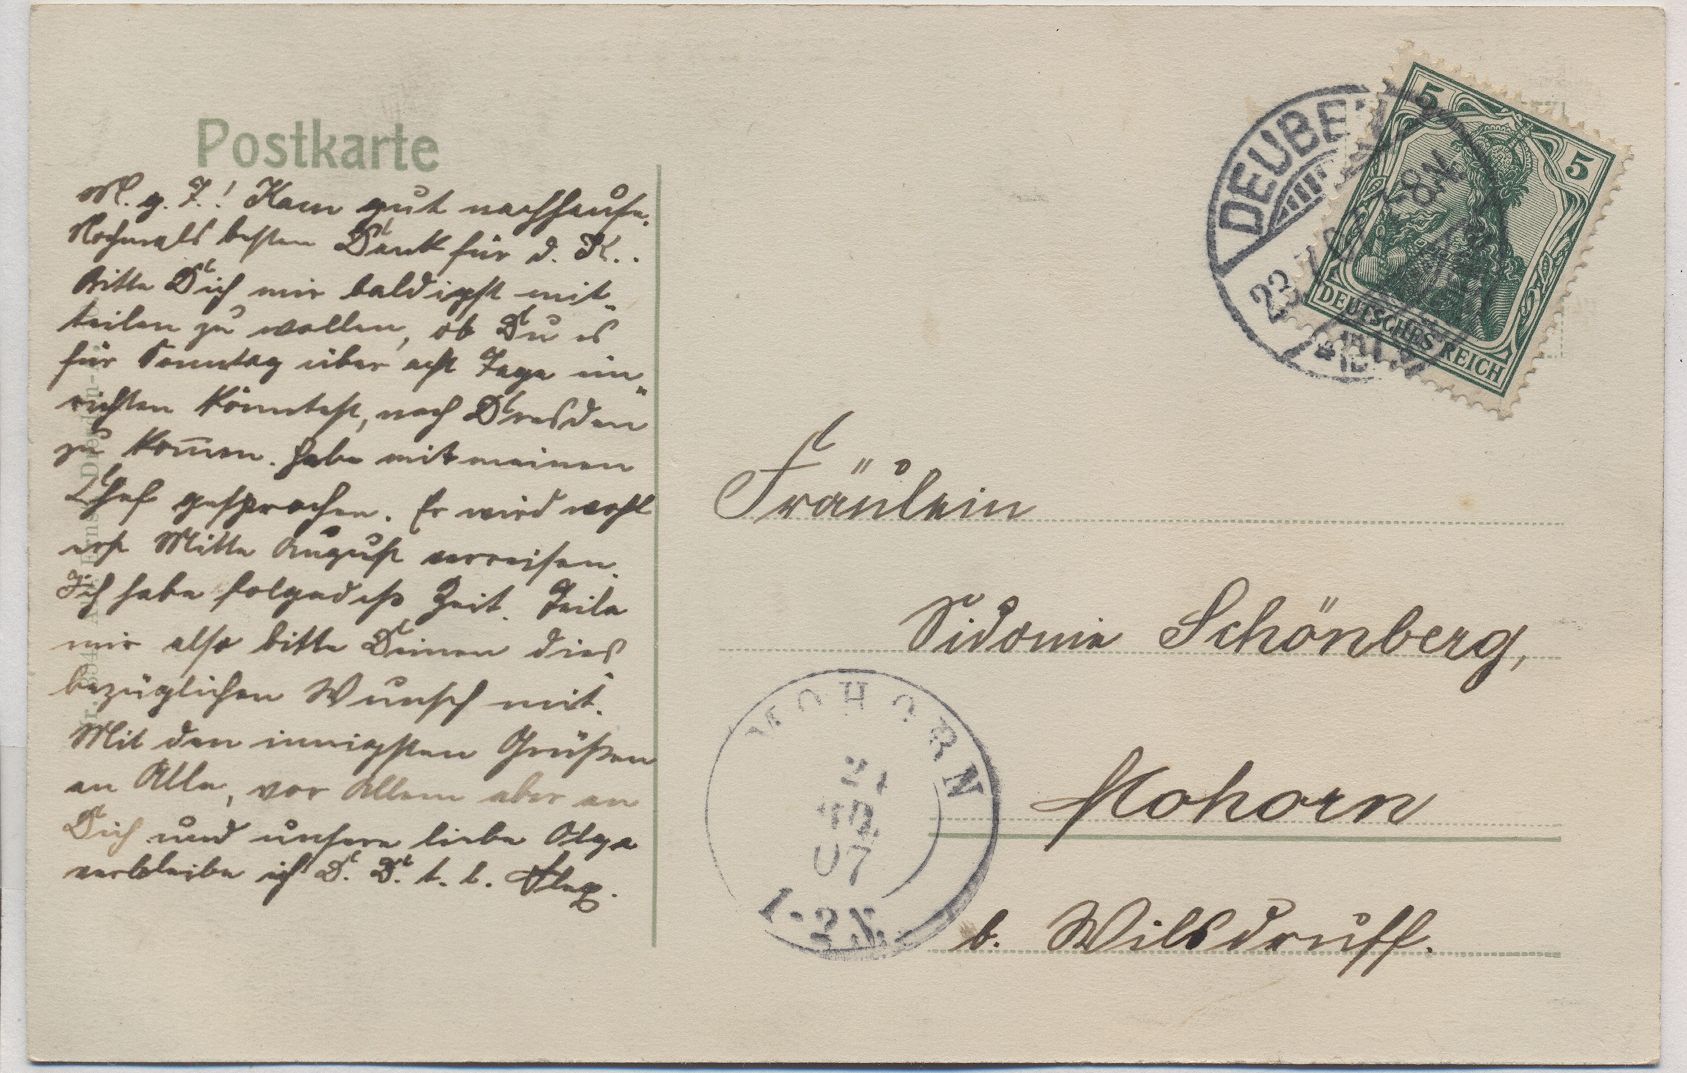 Postkarte
M. g. F.! Kam gut nachhause.
Nochmals besten Dank für d. K..
Bitte Dich mir baldigst mit-
teilen zu wollen, ob Du es
für Sonntag über acht Tage ein-
richten könntest, nach Dresden
zu kom̄en. Habe mit meinen
Chef gesprochen. Er wird wohl
erst Mitte August verreisen.
Ich habe folgedeß Zeit. Teile
mir also bitte Deinen dies
bezüglichen Wunsch mit.
Mit den innigsten Grüßen
an Alle, vor Allem aber an
Dich und unsere liebe Olga
verbleibe ich D. D. t. l.
DEUBEN
23
8-9N.
5
5
DEUTSCHES REICH
Fräulein
Sidonie Schönberg,
Mohorn
b. Wilsdruff.
MOHORN
24
07
1-2N.